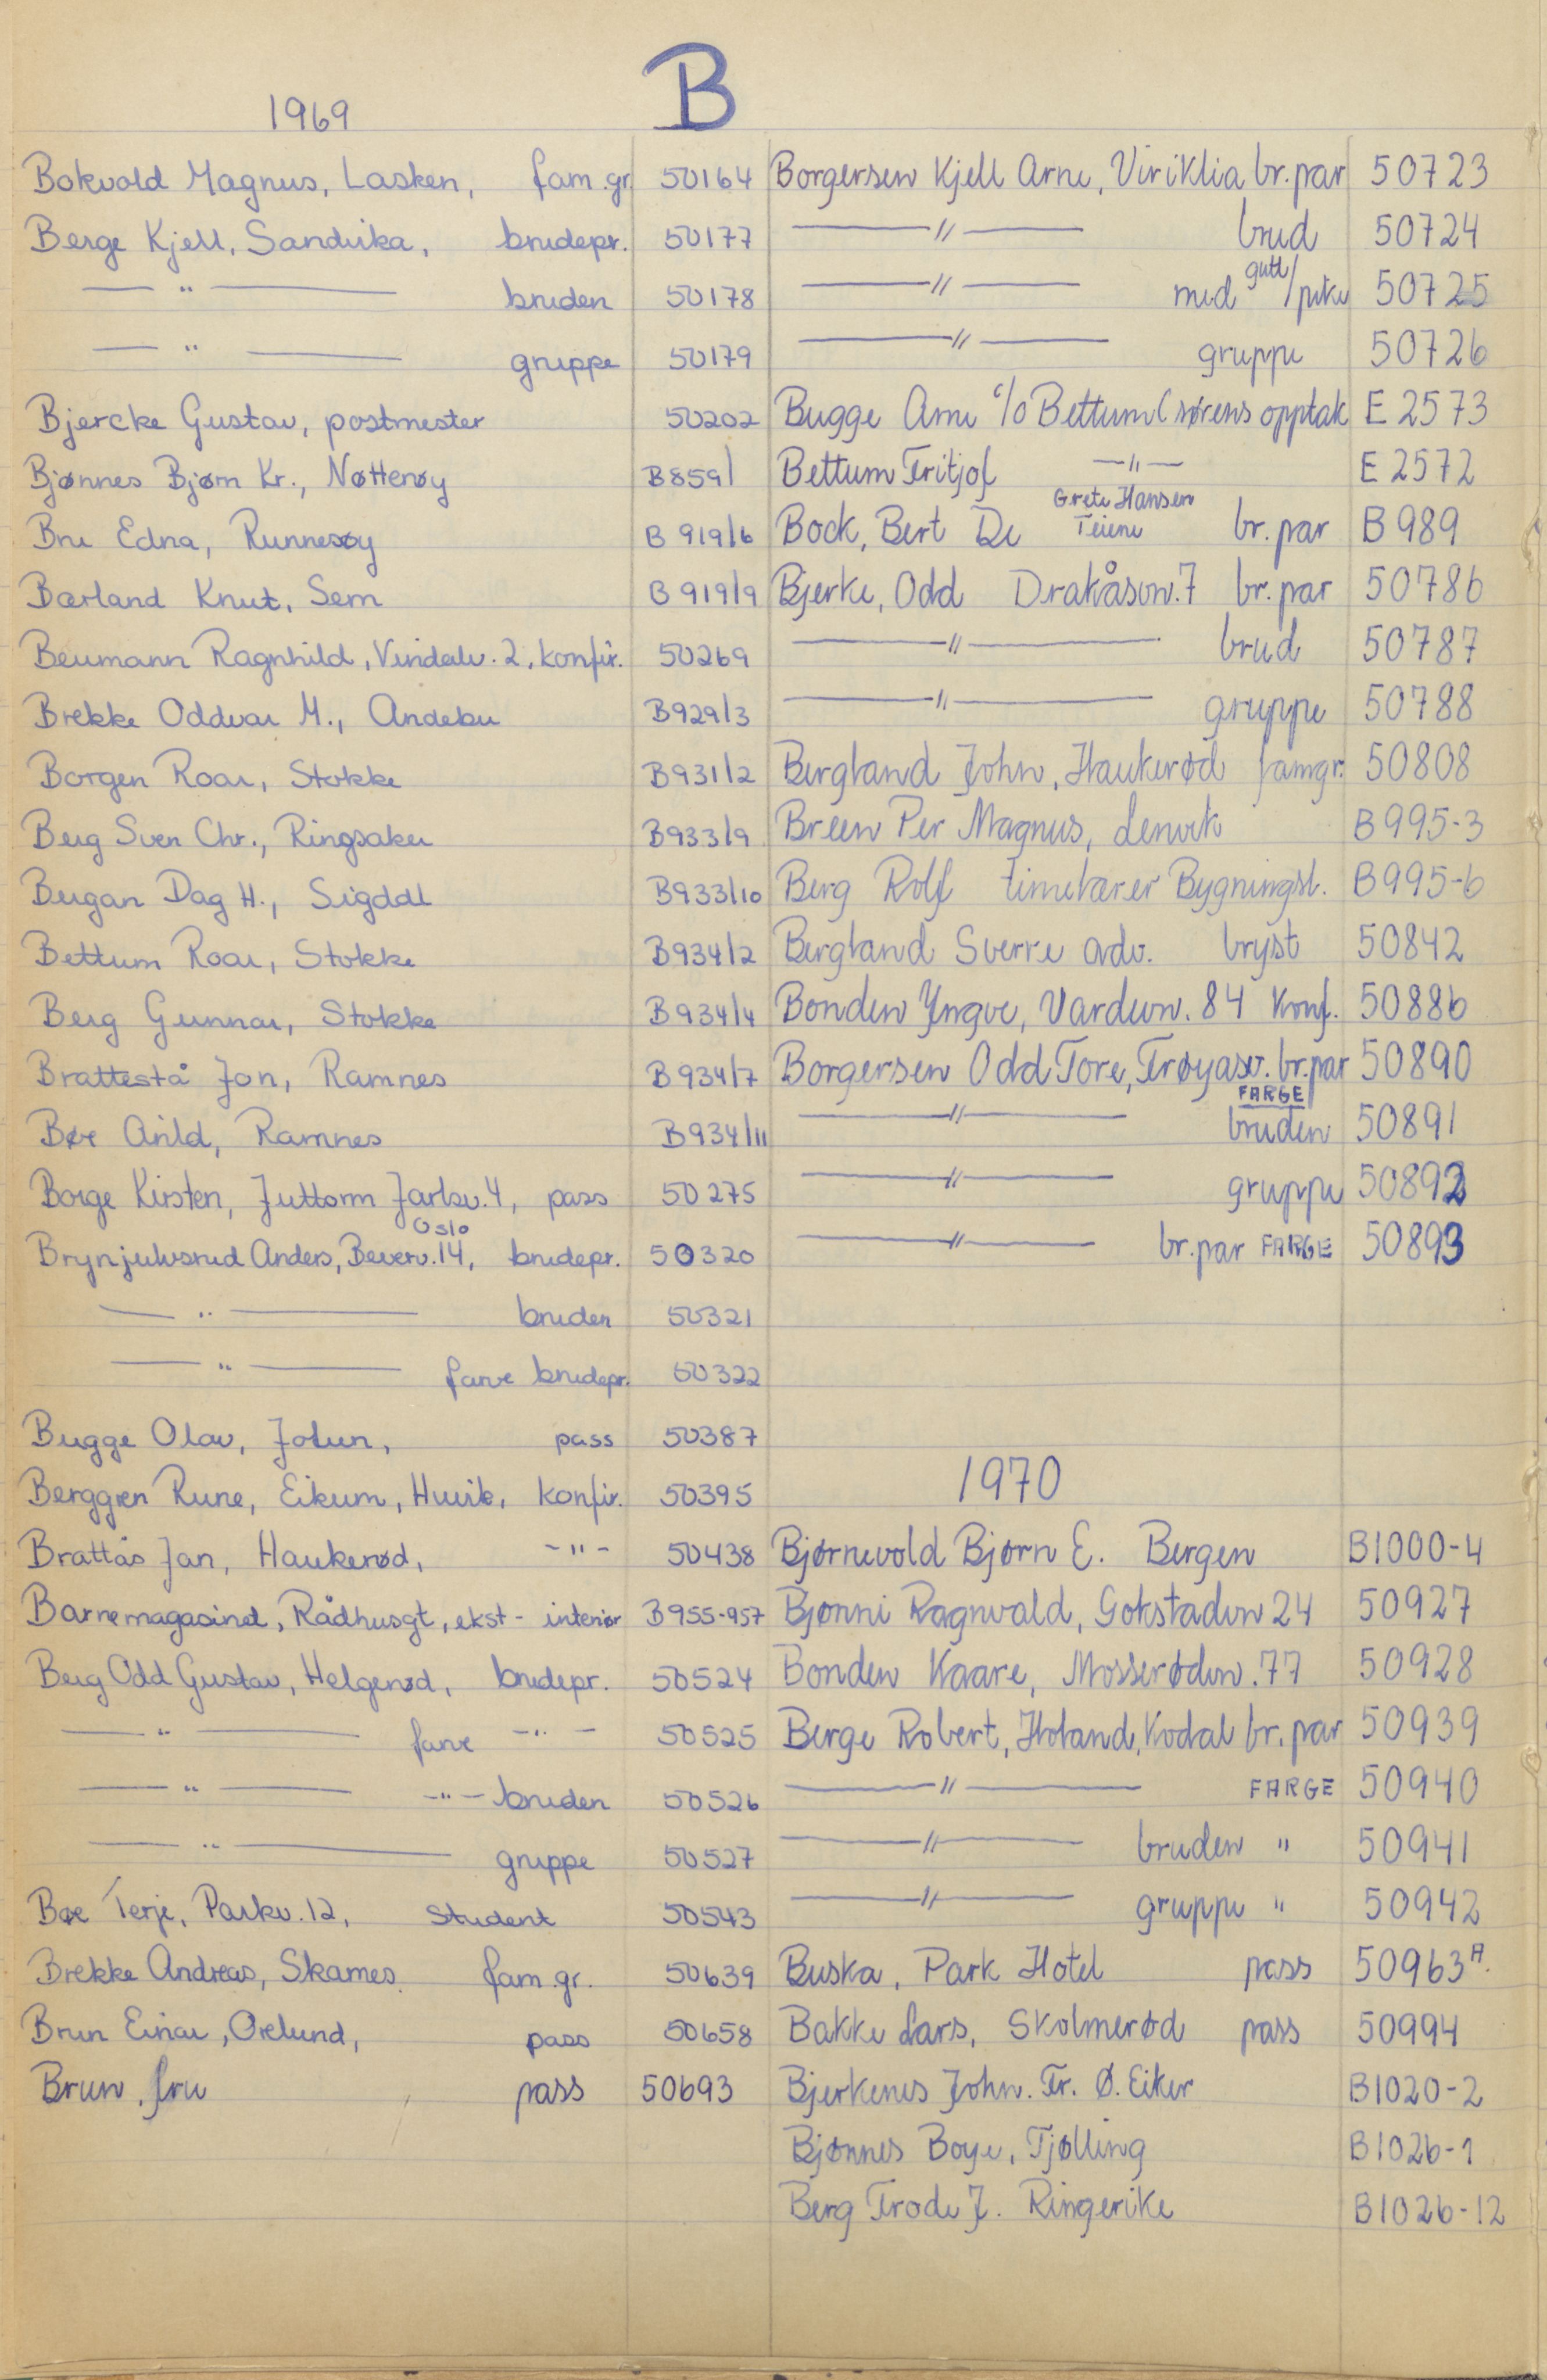 B
1969
Bokvold Magnus, Lasken, fam.gr. 50164
Berge Kjell, Sandvika, brudepr. 50177
— " — bruden 50178
— " — gruppe 50179
Bjercke Gustav, postmester 50202
Bjønnes Bjørn Kr., Nøtterøy B859/
Bru Edna, Runnesøy B919/6
Bærland Knut, Sem B919/9
Beumann Ragnhild, Vindalv. 2, konfir. 50269
Brekke Oddvar M., Andebu B929/3
Borgen Roar, Stokke B931/2
Berg Sven Chr., Ringsaker B933/9
Bergan Dag H., Sigddl B933/10
Bettum Roar, Stokke B934/2
Berg Gunnar, Stokke B934/4
Brattestå Jon, Ramnes B934/7
Bøe Arild, Ramnes B934/11
Borge Kirsten, Juttorm Jarlsv. 4, pass 50275
Brynjulvsrud Anders, Beverv. 14, Oslo brudepr. 50320
— " — bruden 50321
— " — farve brudepr. 50322
Bugge Olav, Jotun, pass 50387
Berggren Rune, Eikum, Hvvik, konfir. 50395
Brattås Jan, Haukerød, - " - 50438
Barnemagasinet, Rådhusgt, ekst - interiør B955-957
Berg Odd Gustav, Helgerød, brudepr. 50524
— " — farve - " - 50525
— " — - " - bruden 50526
— " — gruppe 50527
Bøe Terje, Parkv. 12, Student 50543
Brekke Andreas, Skarnes fam.gr. 50639
Brun Einar, Orelund, pass 50658
Brun, fru pass 50693
Borgersen Kjell Arne, Viriklia br.par 50723
— " — brud 50724
— " — med gutt/pike 50725
— " — gruppe 50726
Bugge Arne c/o Bettum (sørens opptak E 2573
Bettum Fritjof — " — E 2572
Bock, Bert De Grete Hansen Teiene br.par B989
Bjerke, Odd Drakåsvn. 7 br.par 50786
— " — brud 50787
— " — gruppe 50788
Bergland John, Haukerød famgr. 50808
Breen Per Magnus, Lenvik B995-3
Berg Rolf timelærer Bygningsl. B995-6
Bergland Sverre adv. bryst 50842
Bonden Yngve, Vardevn. 84 Konf. 50886
Borgersen Odd Tore, Frøyasv. br.par 50890
— " — FARGE bruden 50891
— " — gruppe 50892
— " — br.par FARGE 50893
1970
Bjørnevold Bjørn E. Bergen B1000-4
Bjønni Ragnvald, Gokstadvn 24 50927
Bonden Kaare, Mosserødvn. 77 50928
Berge Robert, Holand, Kodal br.par 50939
— " — FARGE 50940
— " — bruden " 50941
— " — gruppe " 50942
Buska, Park Hotel pass 50963A.
Bakke Lars, Skolmerød pass 50994
Bjerkenes John. Fr. Ø. Eiker B1020-2
Bjønnes Boye, Tjølling B1026-1
Berg Frode J. Ringerike B1026-12